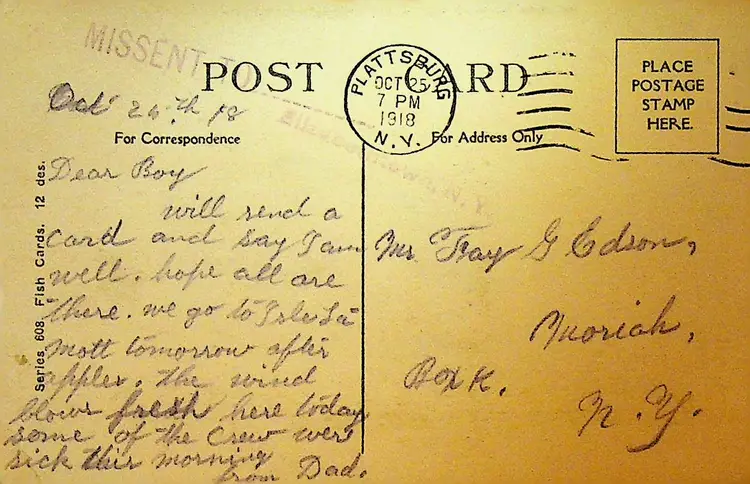 MISSENT TO
POST CARD
PLATTSBURG
OCT 25
7 PM
1918
N.Y.
PLACE
POSTAGE
STAMP
HERE.
For Correspondence
For Address Only
Series 608. Fish Cards. 12 des.
Oct 24th 18
Dear Boy
will send a
card and say I am
well. hope all are
there. we go to Isle La
Mott tomorrow after
apples. the wind
blows fresh here today
some of the Crew were
sick this morning
from Dad.
Mr. Fay G Edson,
Moriah,
Box K.
N.Y.